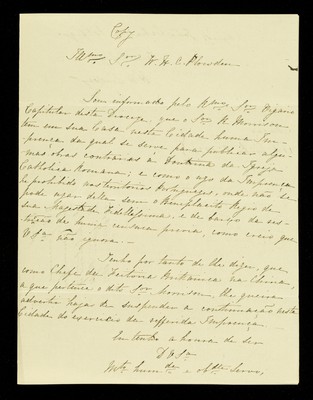 Copy
Illmo Snr W. H. C. Plowden
Sou informado pelo Rmo Snr Vigario
Capitular desta Diocese, que o Snr R. Morrison
tem em sua Casa nesta Cidade huma Im-
prensa da qual se serve para publicar algu-
mas obras contrarias a Doutrina da Igreja
Catholica Romana; e como o uzo da Imprensa
he prohibido nos territorios Portuguezes, onde não se
pode uzar della sem o Beneplacito Regio de
Sua Magestade Fidellissima, e de baixo da res-
trição de huma censura previa, como creio que
V. Sa não ignora.—
Tenho por tanto de lhe dizer, que
como Chefe da Feitoria Britanica na China
a que pertence o dito Snr Morrison, lhe queira
advertir haja de suspender a continuação nesta
Cidade do exercicio da refferida Imprensa.
Eu tenho a honra de ser
D V. Sa
Mto humde e obdte Servo,